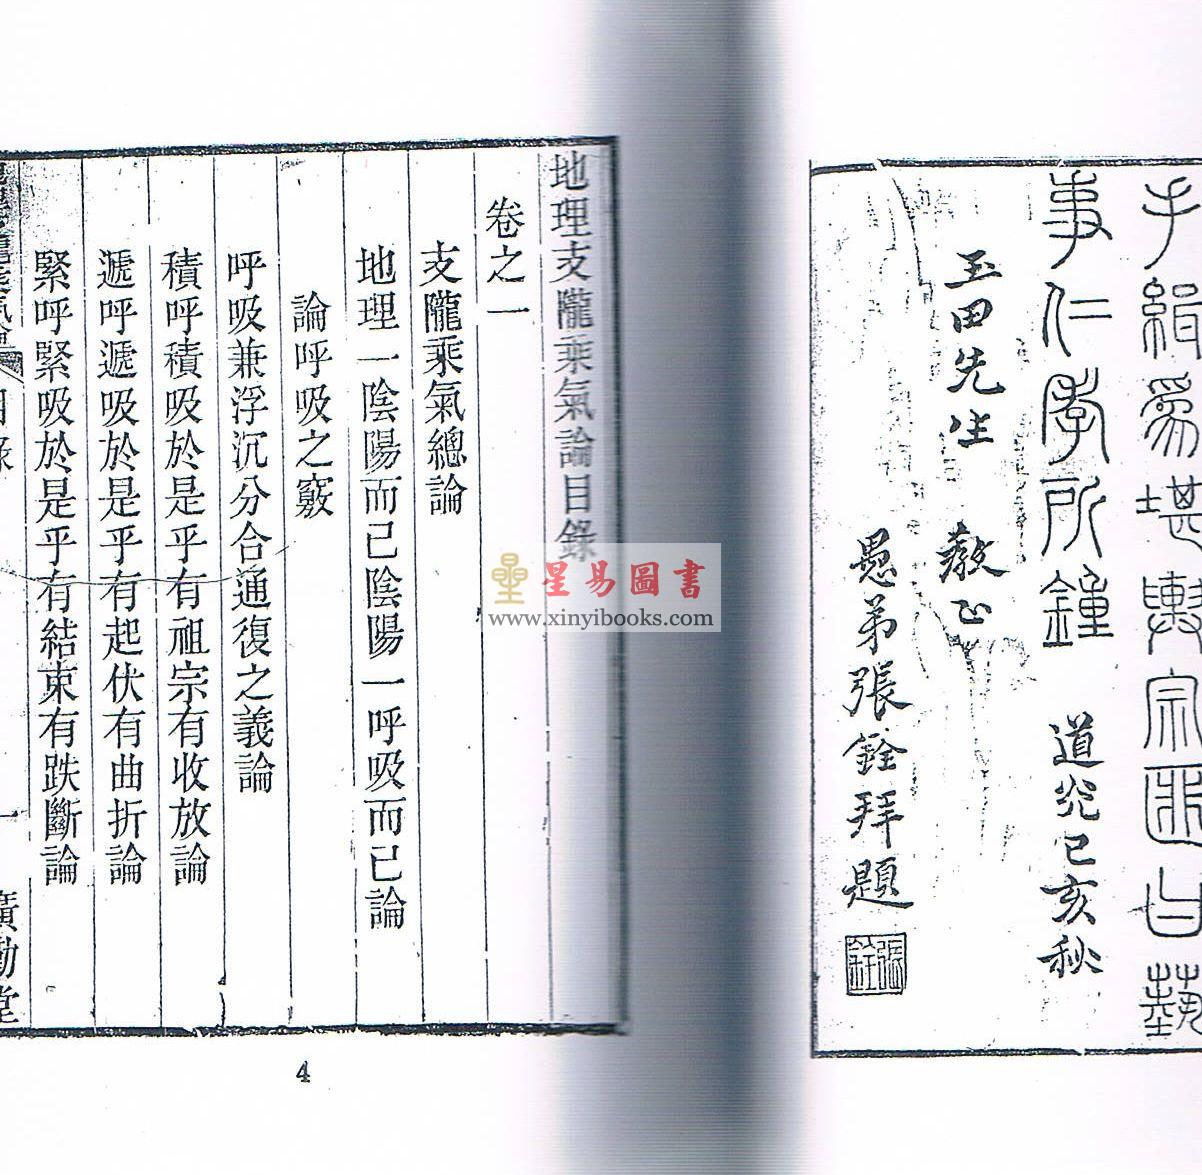 子緝為堪輿宗匠以藝
事仁孝所鐘 道光己亥秋
玉田先生 教正
愚弟張銓拜題
張銓
地理支隴乘氣論目錄
卷之一
支隴乘氣總論
地理一陰陽而已陰陽一呼吸而已論
論呼吸之竅
呼吸兼浮沉分合通復之義論
積呼積吸於是乎有祖宗有收放論
遞呼遞吸於是乎有起伏有曲折論
緊呼緊吸於是乎有結束有跌斷論
目錄 一 廣勤堂
4
星易圖書
www.xinyibooks.com